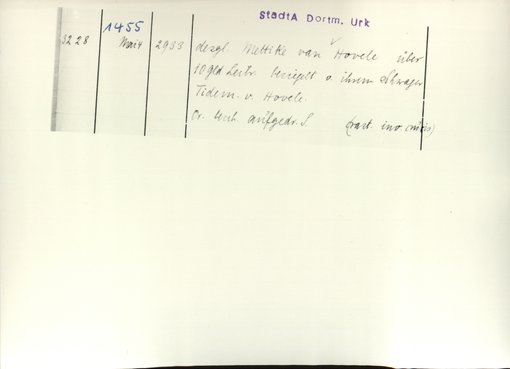 StadtA Dortm. Urk
1455
3228 Mai 4 2933 desgl. Mettike van Hovele über
10 gld Leibr. besiegelt v. ihrem Schwager
Tidem. v. Hovele.
Or. Urk. aufgedr. S. (cast. inv. cruis)